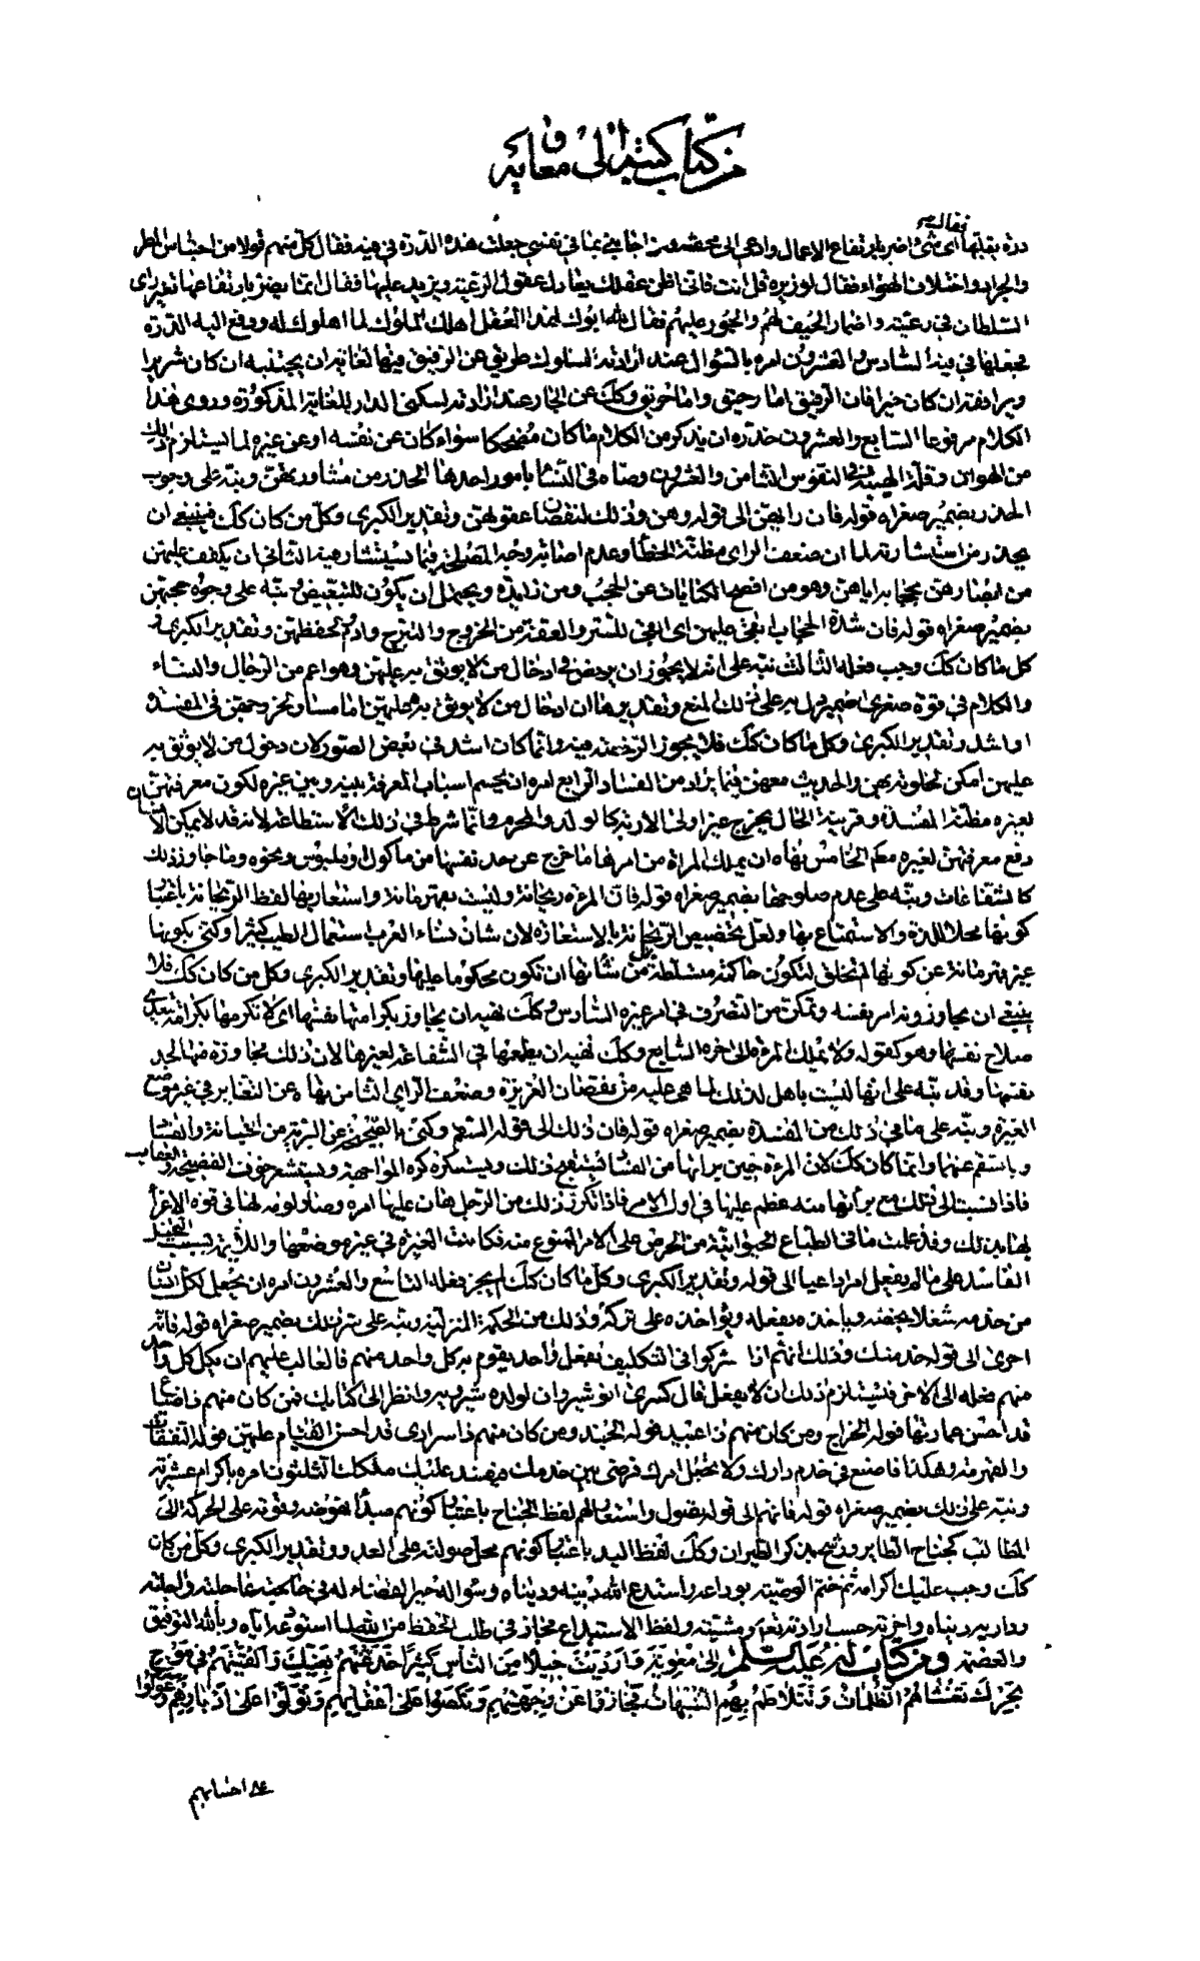 من كتاب كتبه الى معاوية
فقال له
درة بقلتها اى شىء اضر بارتفاع الاعمال وادعى الى محقه ومن اجابنى بما فى نفسى جعلت هذه الدرة فى فيه فقال كل منهم قولا من احتباس المطر
والجراد واختلاف الهواء فقال لوزيره قل انت فانى اظن عقلك يعادل عقول الرعية ويزيد عليها فقال انما يضر بارتفاعها تغير راى
السلطان فى رعيته واضمار الحيف لهم والجور عليهم فقال لله ابوك بهذا العقل اهلك الملوك لما اهلوك له ودفع اليه الدرة
فجعلها فى فيه السادس والعشرون امره بالسؤال عند ارادته السلوك طريق عن الرفيق فيها لغاية ان يجتنبه ان كان شريرا
ويرافقه ان كان خيرا فان الرفيق اما رحيق واما حريق وكك عن الجار عند ارادته لسكنى الدار للغاية المذكورة وروى هذا
الكلام مرفوعا السابع والعشرون حذره ان يذكر من الكلام ما كان مضحكا سواء كان عن نفسه او عن غيره لما يستلزم ذلك
من الهوان وقلة الهيبة فى النفوس الثامن والعشرون وصاه فى النساء بامور احدها الحذر من مشاورتهن ونبه على وجوب
الحذر بضمير صغراه قوله فان رايهن الى قوله وهن وذلك لنقصان عقولهن وتقدير الكبرى وكل من كان كك فينبغى ان
يحذر من استشارته لما ان ضعف الراى مظنة الخطأ وعدم اصابة وجه المصلحة فيما يستشار فيه الثانى ان يكفف عليهن
من ابصارهن بحجابه اياهن وهو من افصح الكنايات عن الحجب ومن زايدة ويحتمل ان يكون للتبعيض ونبه على وجوه حجبهن
بضمير صغراه قوله فان شدة الحجاب ابقى عليهن اى ابقى للستر والعفة من الخروج والتبرج وادوم لحفظهن وتقدير الكبرى و
كل ما كان كك وجب فعله الثالث نبه على انه لا يجوز ان يرخص فى ادخال من لا يوثق به عليهن وهو اعم من الرجال والنساء
والكلام فى قوة صغرى ضمير دل به على ذلك المنع وتقديرها ان ادخال من لا يوثق به عليهن اما مساو لخروجهن فى المفسدة
او اشد وتقدير الكبرى وكل ما كان كك فلا يجوز الرخصة فيه وانما كان اشد فى بعض الصور لان دخول من لا يوثق به
عليهن امكن لخلوته بهن والحديث معهن فيما يراد من الفساد الرابع امره ان يحسم اسباب المعرفة بينه وبين غيره لكون معرفتهن
لغيره مظنة المفسدة وقرينة الحال يخرج عن اولى الاربة كالولد والمحرم وانما شرط فى ذلك الاستطاعة لانه قد لا يمكن الانسان
دفع معرفتهن لغيره معهم الخامس نهاه ان يملك المراة من امرها ما خرج عن حد نفسها من ماكول او ملبوس ونحوه وما جاوز ذلك
كالشفاعات ونبه على عدم صلوحها بضمير صغراه قوله فان المراة ريحانة وليست بقهرمانة واستعار لها لفظ الريحانة باعتبار
كونها محلا للذة والاستمتاع بها ولعل تخصيص الريحانة بالاستعارة لان شان نساء العرب استعمال الطيب كثيرا وكنى بكونها
غير قهرمانة عن كونها لم تخلق لتكون حاكمة متسلطة بل من شانها ان تكون محكوما عليها وتقدير الكبرى وكل من كان كك فلا
ينبغى ان يجاوز به امر نفسه وتمكن من التصرف فى امر غيره السادس وكك نهيه ان يجاوز بكرامتها نفسها اى لا تكرمها بكرامة تتعدى
صلاح نفسها وهو كقوله ولا تملك المراة الى اخره السابع وكك نهيه ان يطمعها فى الشفاعة لغيرها لان ذلك مجاوزة منها لحد
نفسها وقد نبه على انها ليست باهل لذلك لما هى عليه من نقصان الغريزة وضعف الراى الثامن نهاه عن التغاير فى غير موضع
الغيرة ونبه على ما فى ذلك من المفسدة بضمير صغراه قوله فان ذلك الى قوله السقم وكنى بالصحيحة عن البريئة من الخيانة والفساد
وبالسقم عنهما وانما كان كك لان المراة حين برائتها من الفساد تستقبح ذلك وتستنكره كره المواجهة وتستشعر خوف الفضيحة والعقاب
فاذا نسبت الى ذلك مع برائتها منه عظم عليها فى اول الامر فاذا تكرر ذلك من الرجل هان عليها امره وصار لومه لها فى قوة الاغراء
لها بذلك وقد علمت ما فى الطباع الحيوانية من الحرص على الامر الممنوع منه فكانت الغيرة فى غير موضعها واللائمة بسبب التخيل
الفاسد على ما لم يفعل امرا داعيا الى قوله وتقدير الكبرى وكل ما كان كك لم يجز فعله التاسع والعشرون امره ان يجعل لكل انسان
من خدمه شغلا يخصه وياخذه بفعله ويؤاخذه على تركه وذلك من الحكمة المنزلية ونبه على سر ذلك بضمير صغراه قوله فانه
احرى الى قوله خدمتك وذلك انهم اذا شركوا فى التكليف بفعل واحد يقوم به كل واحد منهم فالغالب عليهم ان يكل كل واحد
منهم فعله الى الاخر فيستلزم ذلك ان لا يفعل قال كسرى انوشيروان لولده شيرويه وانظر الى كتابك فمن كان منهم ذا ضياع
قد احسن عمارتها فوله الخراج ومن كان منهم ذا عبيد فوله الجند ومن كان منهم ذا سرارى قد احسن القيام عليهن فوله النفقات
والقهرمة وهكذا فاصنع فى خدم دارك ولا تجعل امرك فوضى بين خدمك فيفسد عليك ملكك الثلثون امره باكرام عشيرته
ونبه على ذلك بضمير صغراه قوله فانهم الى قوله تصول واستعار لهم لفظ الجناح باعتبار كونهم مبدأ نهوضه وقوته على الحركة الى
المطالب كجناح الطاير ورشح بذكر الطيران وكك لفظ اليد باعتبار كونهم محل صولته على العدو وتقدير الكبرى وكل من كان
كك وجب عليك اكرامه ثم ختم الوصية بوداعه واستودع الله دينه ودنياه وسؤاله خير القضاء له فى عاجلته واجلته
وداريه دنياه واخرته حسب ارادته تعالى ومشيته ولفظ الاستيداع مجاز فى طلب الحفظ من الله لما استودعه اياه وبالله التوفيق
والعصمة ومن كتاب له عليه السلم الى معوية وارديت جيلا من الناس كثيرا خدعتهم بغيك والقيتهم فى موج
بحرك تغشاهم الظلمات وتتلاطم بهم الشبهات فجازوا عن وجهتهم ونكصوا على اعقابهم وتولوا على ادبارهم وعولوا
على احسابهم